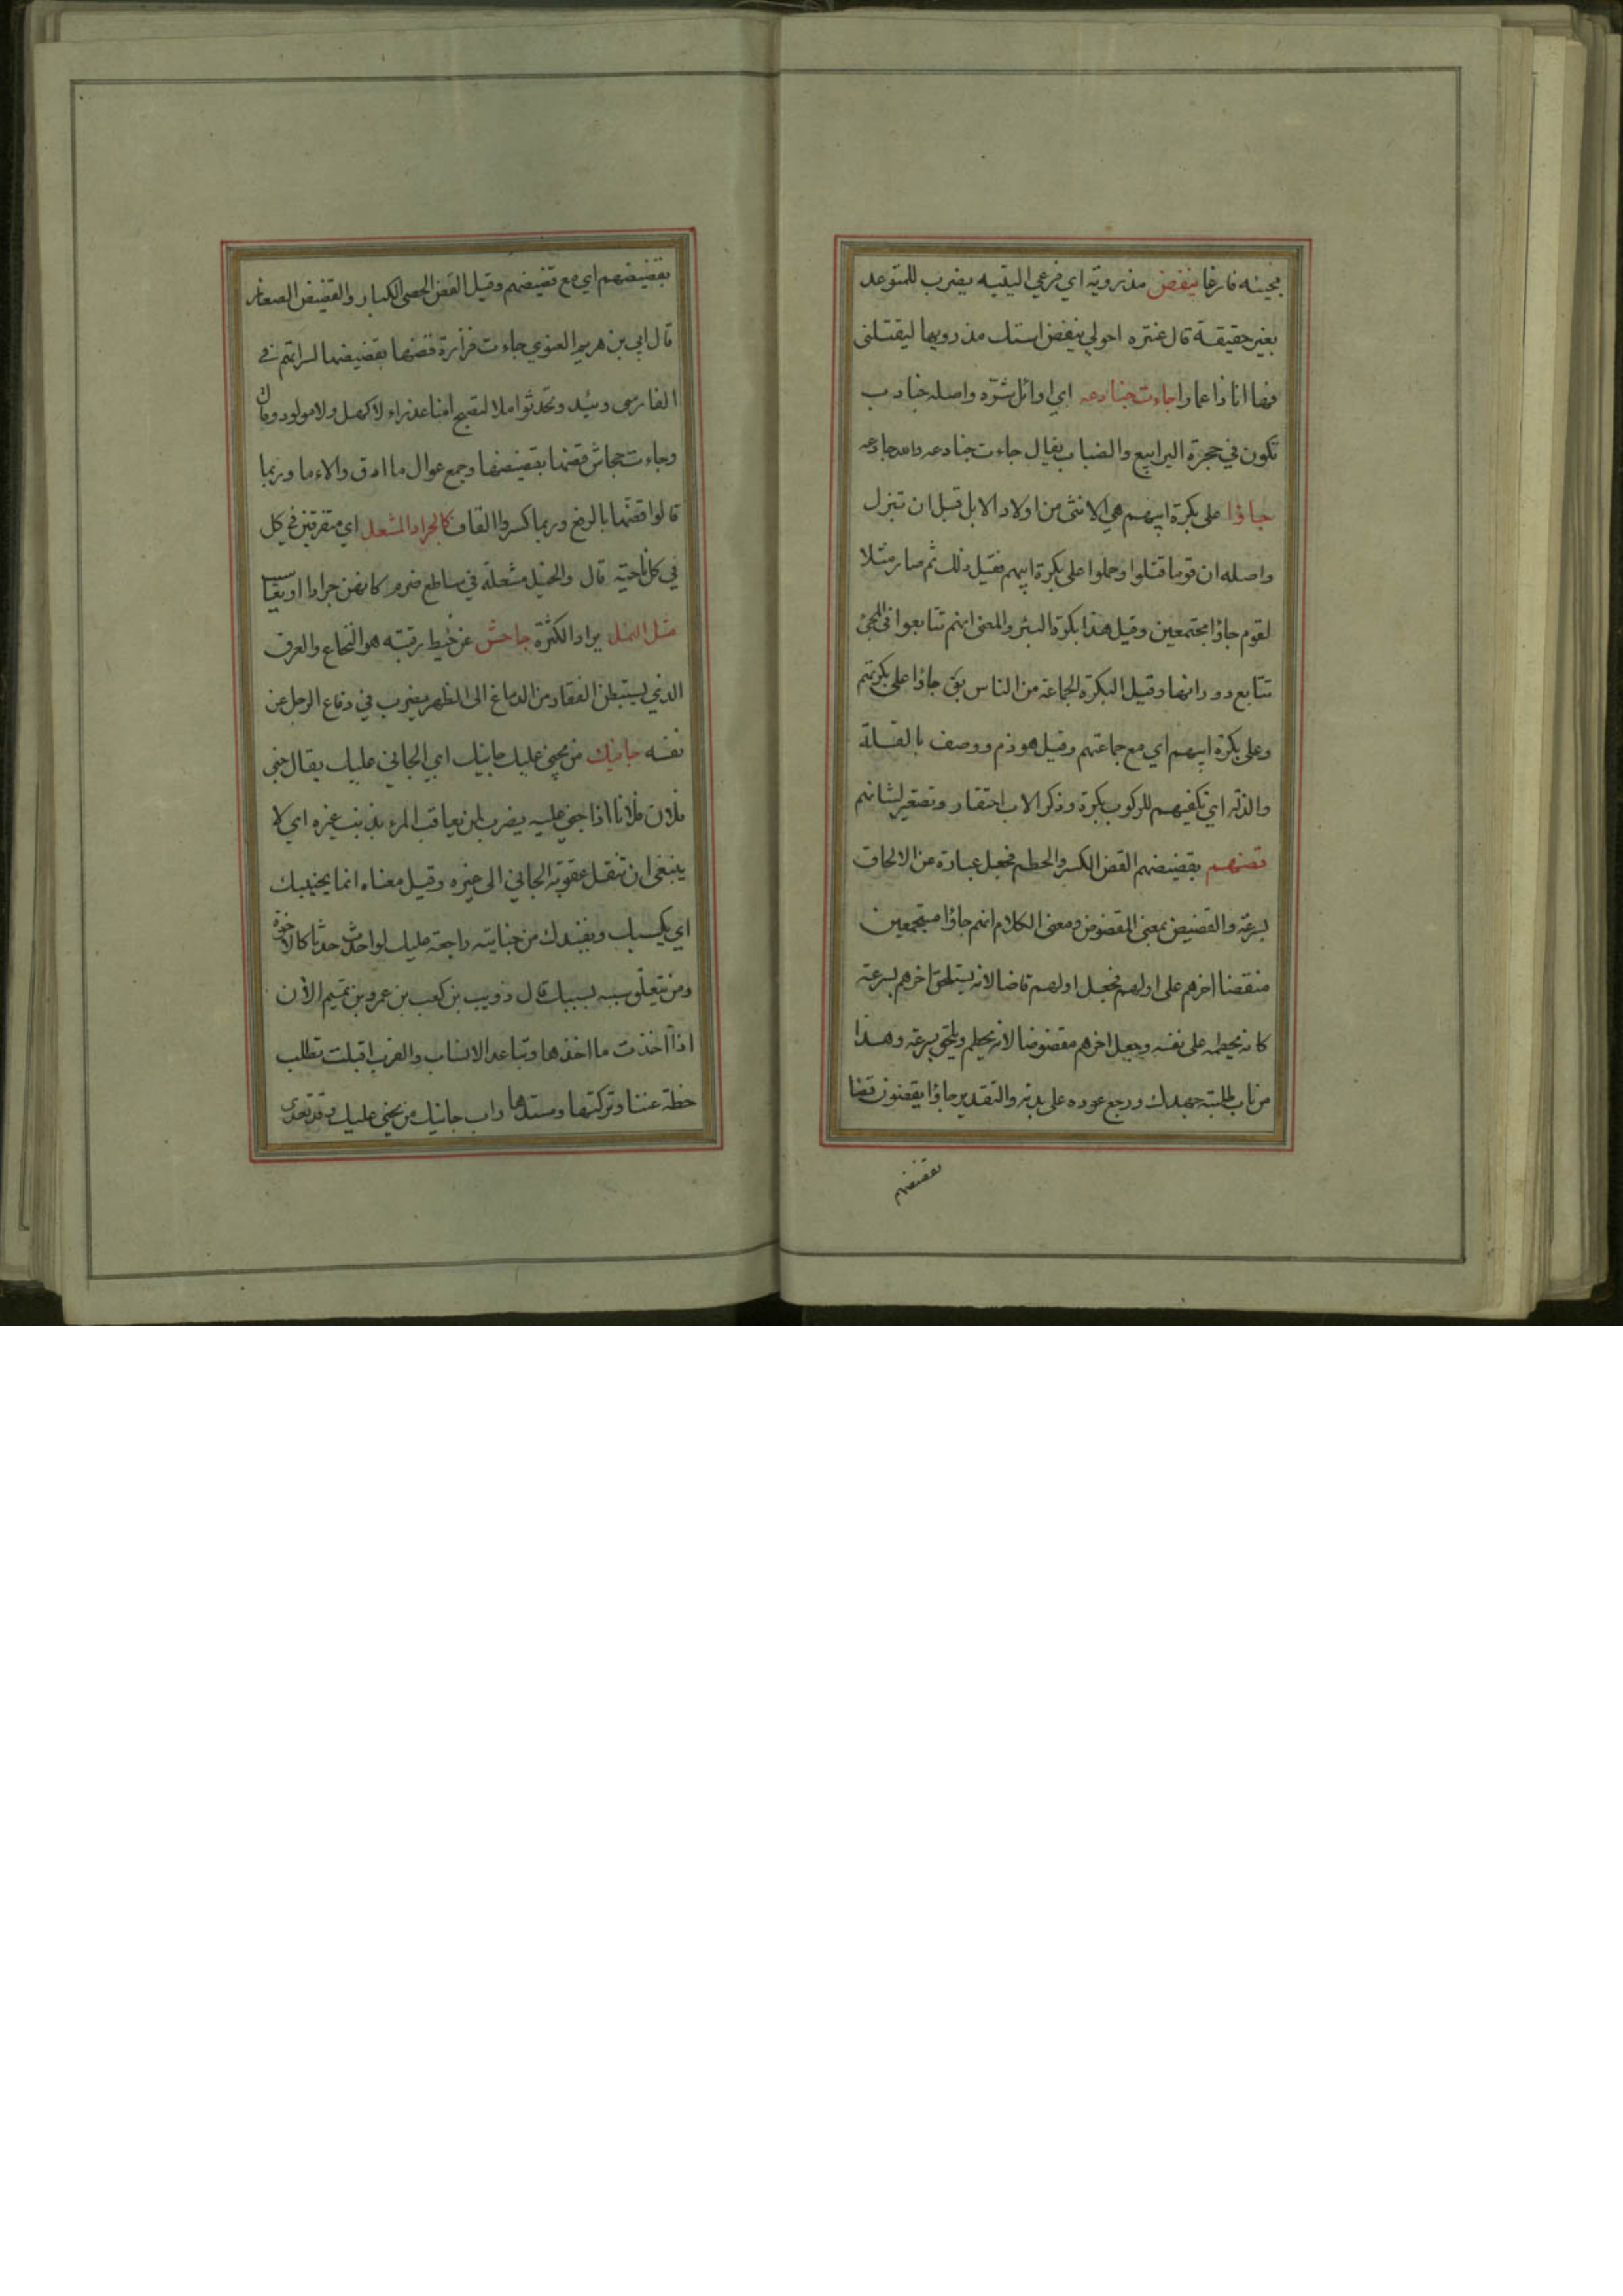 مجيئه فارغا ينفض مذرويه اي فرعي اليتيه يضرب للمتوعد
بغير حقيقة قال عنتره احولي ينفض استك مذرويها ليقتلنى
فها انا ذا عمارا جاءت جنادعه اي اوائل شره واصله جنادب
تكون في حجرة اليرابيع والضباب يقال جاءت جنادعه والله جادعه
جاؤا على بكرة ابيهم هي الانثى من اولاد الابل قبل ان تبزل
واصله ان قوما قتلوا وحملوا على بكرة ابيهم فقيل ذلك ثم صار مثلا
لقوم جاؤا مجتمعين وقيل هذا بكرة البئر والمعنى انهم تتابعوا في المجئ
تتابع دورانها وقيل البكرة الجماعة من الناس يق جاؤا على بكرتهم
وعلى بكرة ابيهم اي مع جماعتهم وقيل هو ذم ووصف بالقلة
والذلة اي تكفيهم للركوب بكرة وذكر الاب احتقار وتصغير لشانهم
قضهم بقضيضهم القض الكسر والحطم فجعل عبارة عن الالحاق
بسرعة والقضيض بمعنى المقضوض ومعنى الكلام انهم جاؤا مستجمعين
منقضا اخرهم على اولهم فجعل اولهم قاضا لانه يستلحق اخرهم بسرعة
كانه يحطمه على نفسه وجعل اخرهم مقضوضا لانه يحطم ويلتحق بسرعة وهذا
من باب طلبته جهدك ورجع عوده على بدئه والتقدير جاؤا يقضون قضا
بقضيضهم
بقضيضهم اي مع قضيضهم وقيل القض الحصى الكبار والقضيض الصغار
قال ابي بن هريم الغنوي جاءت فزارة قضها بقضيضها لسراتهم في
الفارسي وتحدثوا ملا لتصبح امنا عذراء لا كهل ولا مولود وقال
وجاءت جحاش قضها بقضيضها وجمع عوال ما ادق والاءما وربما
قالوا قضها بالرفع وربما كسروا القاف كالجراد المشعل اي متفرقين في كل
في كل ناحية قال والخيل مشعلة في ساطع ضرم كانهن جراد او يعاسيب
مثل النمل يراد الكثرة جاحش عن خيط رقبته هو النخاع والعرق
الذي يستبطن الفقار من الدماغ الى الظهر يضرب في دفاع الرجل عن
نفسه جانيك من يجني عليك جانيك اي الجاني عليك يقال جنى
فلان فلانا اذا جنى عليه يضرب لمن يعاقب المرء بذنب غيره اي لا
ينبغي ان تنقل عقوبة الجاني الى غيره وقيل معناه انما يجنيبك
اي يكسبك ويفيدك من جنايته راجعة عليك لو احدث حدثا كالاخوة
ومن يتعلق سببه بسببك قال ذويب بن كعب بن عمرو بن تميم الأن
اذا اخذت ما اخذها وتباعد الانساب والقرب اقبلت تطلب
خطة غبنا وتركتها ومسدها راب جانيك من يجني عليك وقد تعدى